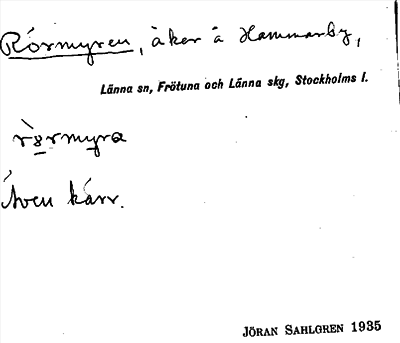 Rörmyren, åker å Hammarby,
Länna sn, Frötuna och Länna skg, Stockholms l.
rörmyra
Även kärr.
JÖRAN SAHLGREN 1935